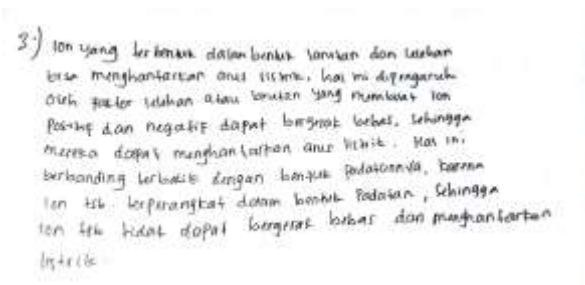 3.) Ion yang berbentuk dalam bentuk larutan dan lelehan
bisa menghantarkan arus listrik. hal ini dipengaruh
oleh faktor lelehan atau larutan yang membuat ion
Positif dan negatif dapat bergerak bebas, sehingga
mereka dapat menghantarkan arus listrik. Hal ini
berbanding terbalik dengan bentuk Padatannya, karena
ion tsb. terperangkat dalam bentuk Padatan, sehingga
ion tsb tidak dapat bergerak bebas dan menghantarkan
listrik